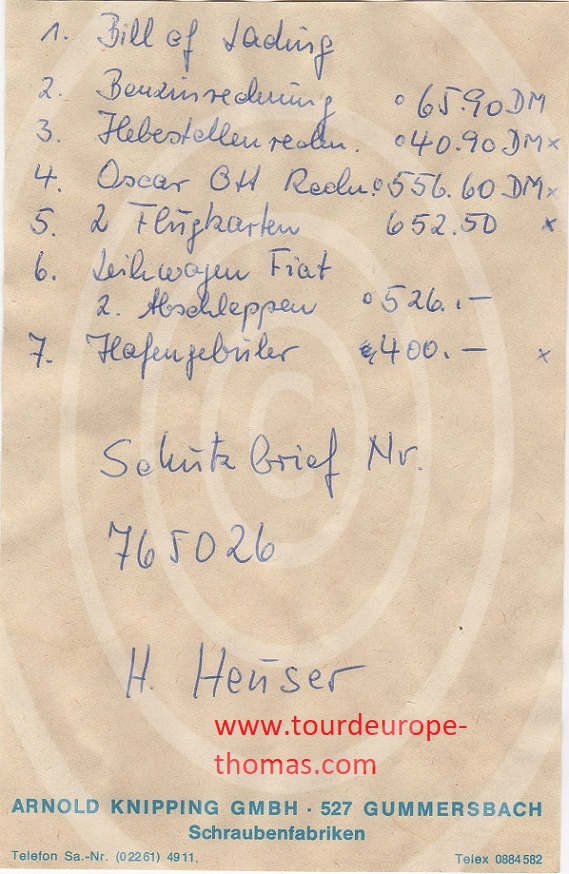 1. Bill of Lading
2. Benzinrechnung ° 65.90 DM
3. Hebestellenrechn. ° 40.90 DM x
4. Oscar Ott Rechn. ° 556.60 DM x
5. 2 Flugkarten 652.50 x
6. Leihwagen Fiat
2. Abschleppen ° 526.–
7. Hafengebüler 400.– x
Schutzbrief Nr.
765026
H. Heuser
www.tourdeurope-
thomas.com
ARNOLD KNIPPING GMBH · 527 GUMMERSBACH
Schraubenfabriken
Telefon Sa.-Nr. (02261) 4911, Telex 0884582